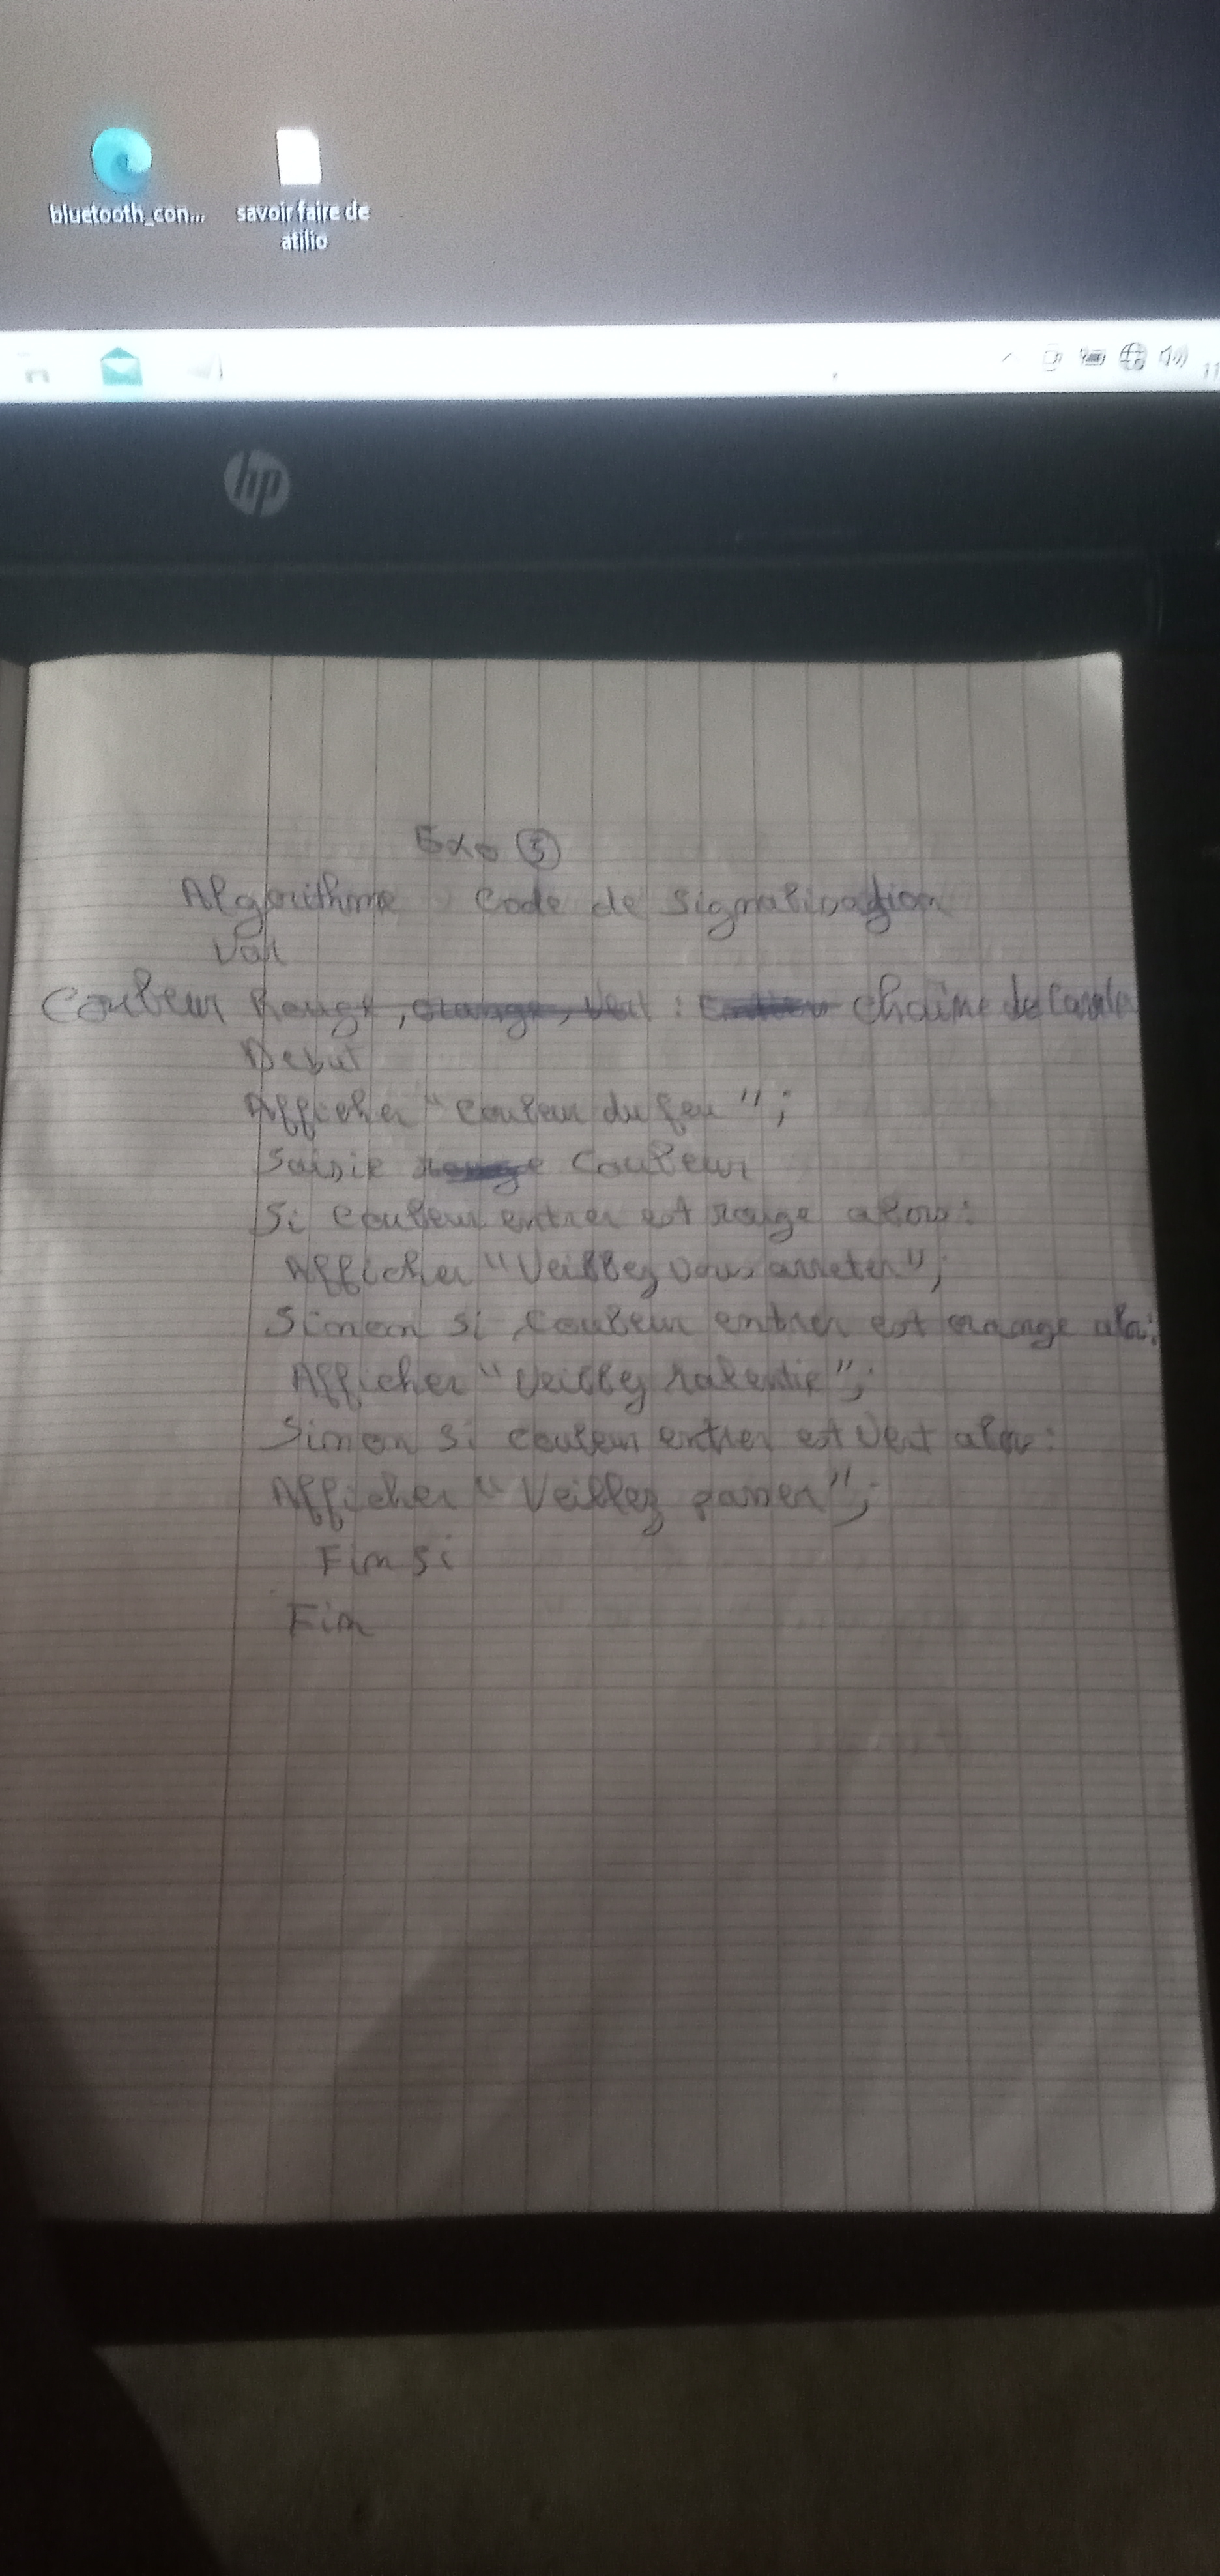 bluetooth_con...
savoir faire de
atilio
11
hp
Exo ③
Algorithme Code de Signalisation
Var
Couleur Rouge, orange, Vert : chaîne de
Debut
Afficher "Couleur du feu";
Saisie Couleur
Si Couleur entrer est rouge alors:
Afficher "Veillez vous arreter";
Sinon si Couleur entrer est orange alor:
Afficher "Veillez ralentie";
Sinon si couleur entrer est Vert alor:
Afficher "Veillez passer";
Fin si
Fin